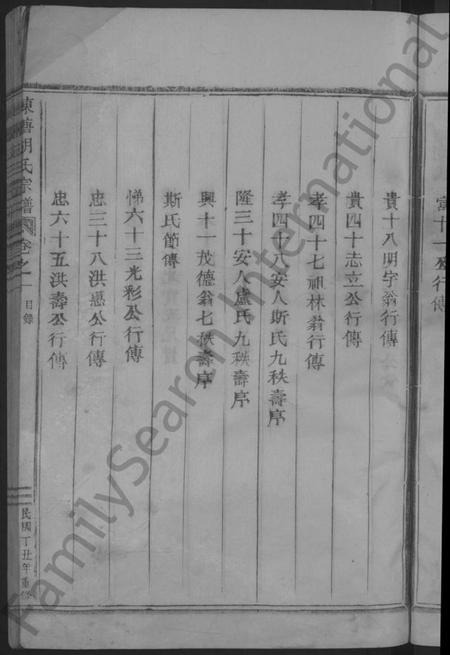 貴十八明字翁行傳
貴四十志立公行傳
孝四十七祖林翁行傳
孝四十八安人斯氏九秩壽序
隆三十安人盧氏九秩壽序
興十一茂德翁七秩壽序
斯氏節傳
悌六十三光彩公行傳
忠三十八洪懋公行傳
忠六十五洪壽公行傳
胡氏宗譜
卷之一
目錄
民國丁丑年重修
十一公行傳
FamilySearch International